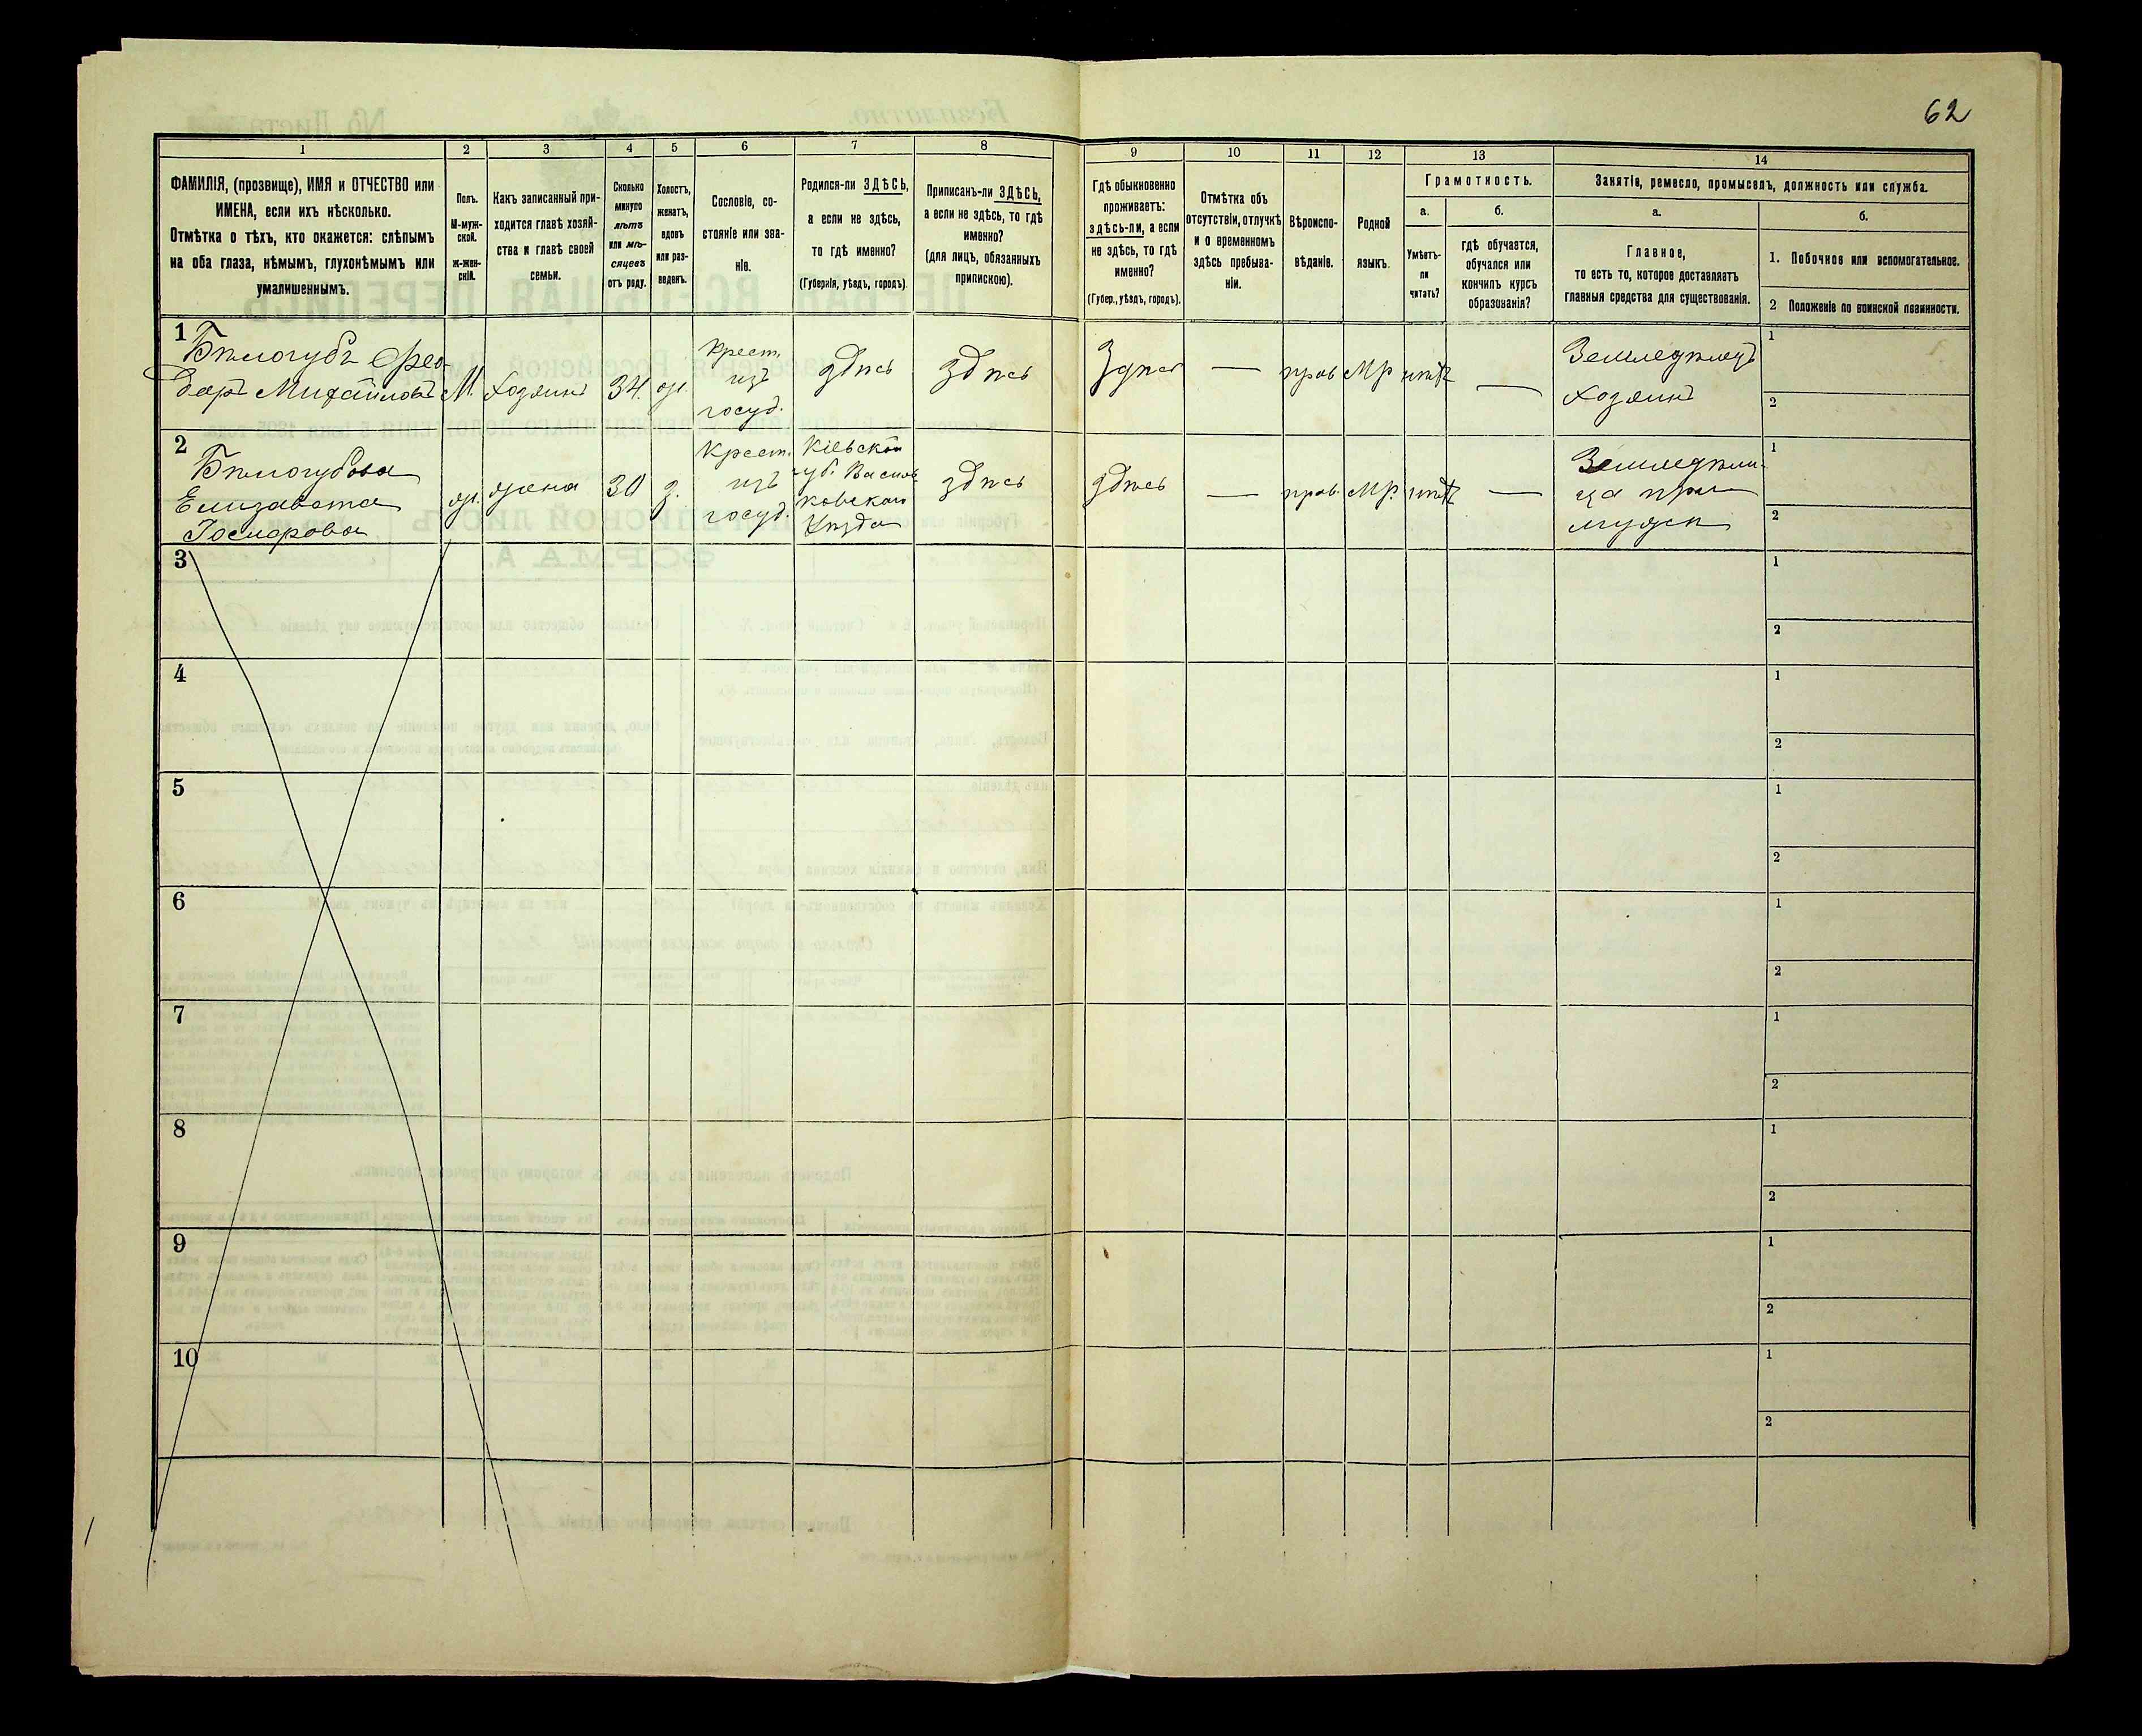 62
1 2 3 4 5 6 7 8 9 10 11 12 13 14
ФАМИЛІЯ, (прозвище), ИМЯ и ОТЧЕСТВО или
ИМЕНА, если ихъ нѣсколько.
Отмѣтка о тѣхъ, кто окажется: слѣпымъ
на оба глаза, нѣмымъ, глухонѣмымъ или
умалишеннымъ.
Полъ.
М-муж-
ской.
ж-жен-
скій.
Какъ записанный при-
ходится главѣ хозяй-
ства и главѣ своей
семьи.
Сколько
минуло
лѣтъ
или мѣ-
сяцевъ
отъ роду.
Холостъ,
женатъ,
вдовъ
или раз-
веденъ.
Сословіе, со-
стояніе или зва-
ніе.
Родился-ли ЗДѢСЬ,
а если не здѣсь,
то гдѣ именно?
(Губернія, уѣздъ, городъ).
Приписанъ-ли ЗДѢСЬ,
а если не здѣсь, то гдѣ
именно?
(для лицъ, обязанныхъ
припискою).
Гдѣ обыкновенно
проживаетъ:
здѣсь-ли, а если
не здѣсь, то гдѣ
именно?
(Губер., уѣздъ, городъ).
Отмѣтка объ
отсутствіи, отлучкѣ
и о временномъ
здѣсь пребыва-
ніи.
Вѣроиспо-
вѣданіе.
Родной
языкъ.
Грамотность.
а.
Умѣетъ-
ли
читать?
б.
гдѣ обучается,
обучался или
кончилъ курсъ
образованія?
Занятіе, ремесло, промыселъ, должность или служба.
а.
Главное,
то есть то, которое доставляетъ
главныя средства для существованія.
б.
1. Побочное или вспомогательное.
2 Положеніе по воинской повинности.
1
Бѣлогубъ Фео-
доръ Михайловъ
М.
хозяинъ
34.
ж.
Крест.
изъ
госуд.
здѣсь
здѣсь
Здѣсь
—
прав
Мр
нѣтъ
—
Земледѣлецъ
хозяинъ
1
2
2
Бѣлогубова
Елизавета
ж.
жена
30
з.
Крест.
изъ
госуд.
Кіевской
губ. Василь
ковскаго
Уѣзда
здѣсь
здѣсь
—
прав.
Мр.
нѣтъ
—
Земледѣли-
ца при
мужѣ
1
2
3
1
2
4
1
2
5
1
2
6
1
2
7
1
2
8
1
2
9
1
2
10
1
2